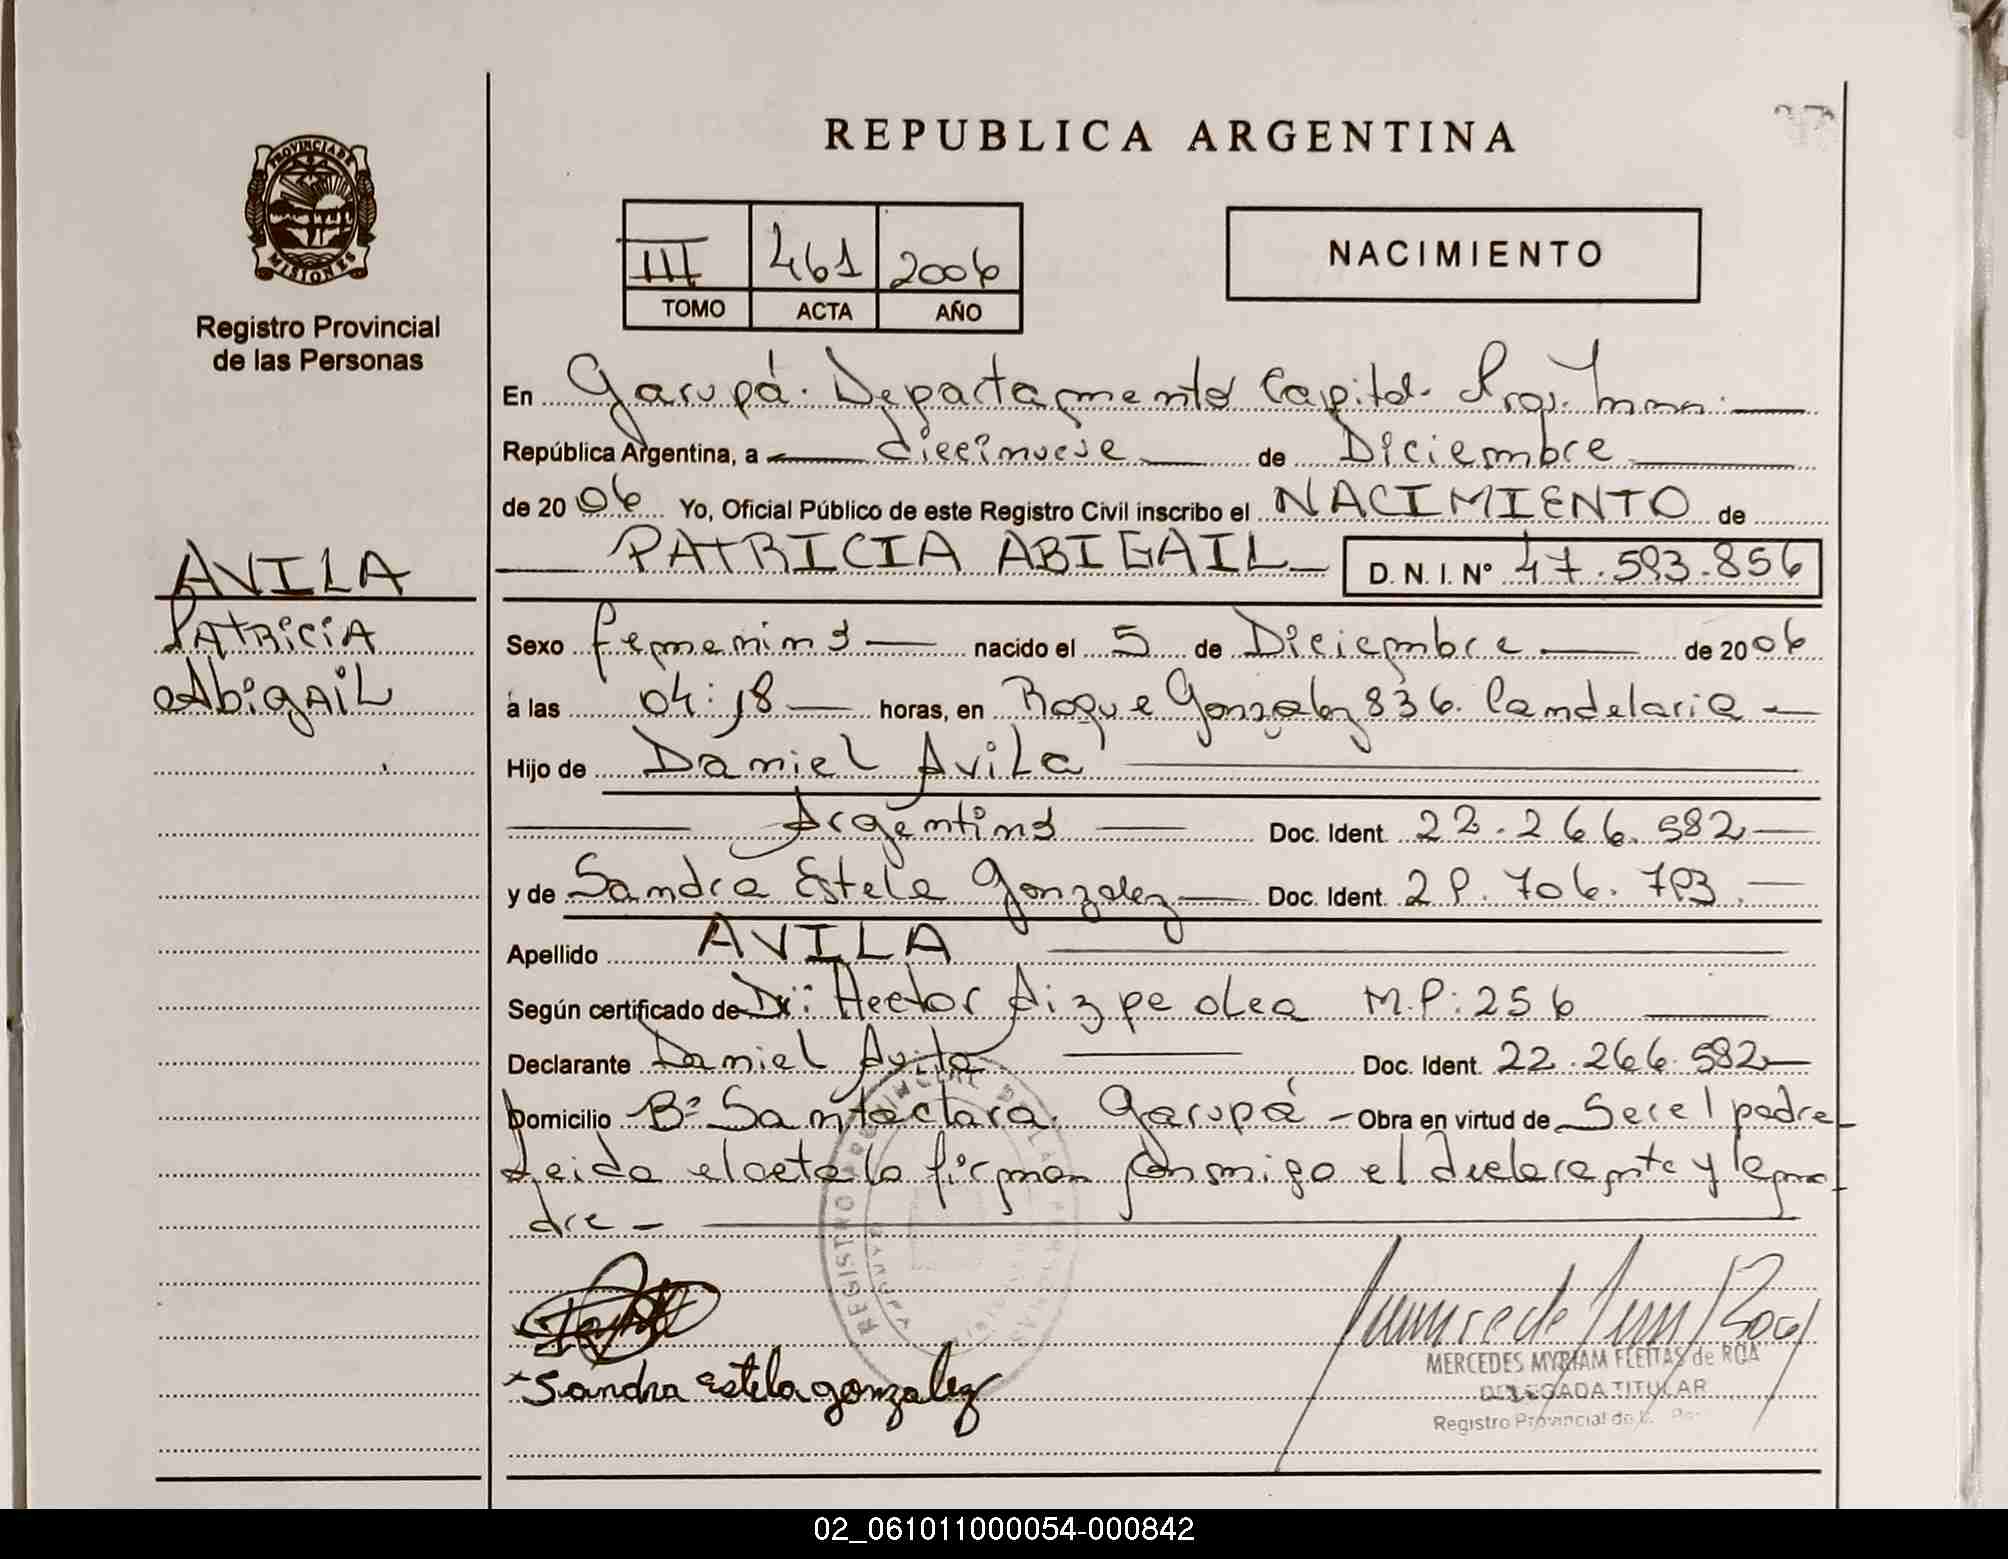 REPUBLICA ARGENTINA
PROVINCIA DE
MISIONES
Registro Provincial
de las Personas
III 461 2006
TOMO ACTA AÑO
NACIMIENTO
En Garupá. Departamento Capital
República Argentina, a diecinueve de Diciembre
de 2006 Yo, Oficial Público de este Registro Civil inscribo el NACIMIENTO de
PATRICIA ABIGAIL D. N. I. Nº 47.593.856
AVILA
Patricia
Abigail
Sexo femenino nacido el 5 de Diciembre de 2006
á las 04:18 horas, en Roque Gonzalez 836. Candelaria
Hijo de Daniel Avila
Argentino Doc. Ident. 22.266.582
y de Sandra Estela Gonzalez Doc. Ident. 29.706.793
Apellido AVILA
Según certificado de Dr: Hector Aizpeolea M.P: 256
Declarante Daniel Avila Doc. Ident. 22.266.582
Domicilio Bº Santa clara. Garupá - Obra en virtud de Ser el padre
Leida el acta la firman conmigo el declarante y la ma-
dre -
REGISTRO PROVINCIAL DE LAS PERSONAS
Sandra Estela gonzalez
MERCEDES MYRIAM FLEITAS de ROA
DELEGADA TITULAR
Registro Provincial de
02_061011000054-000842